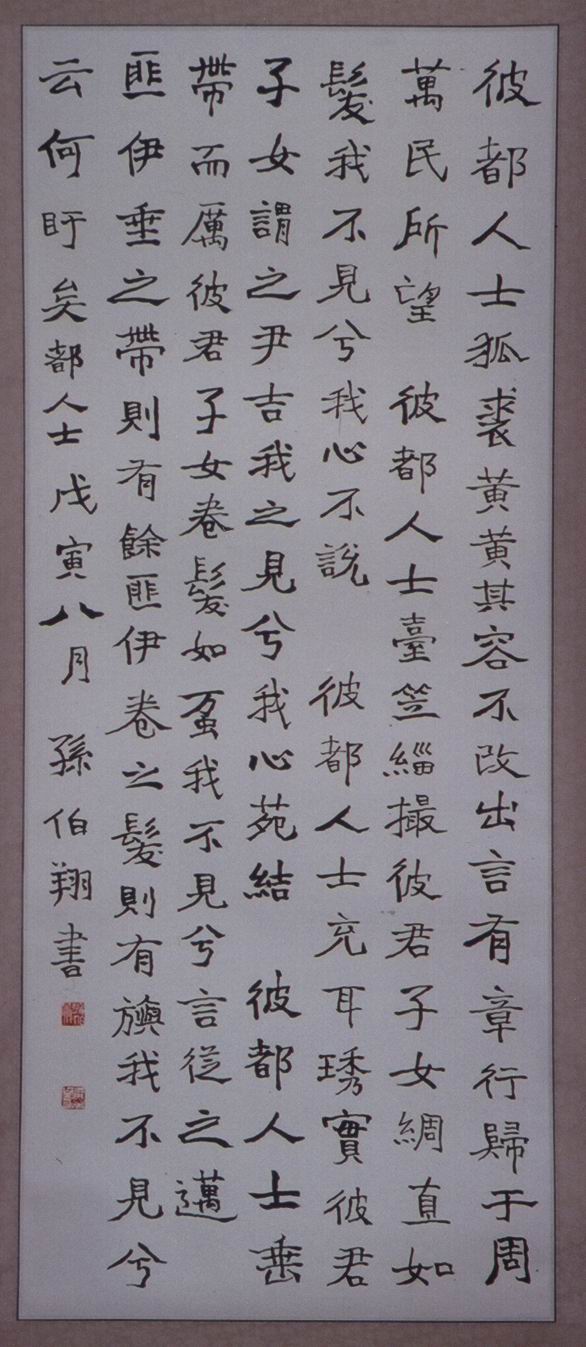 彼都人士狐裘黄黄其容不改出言有章行歸于周
萬民所望 彼都人士臺笠緇撮彼君子女綢直如
髮我不見兮我心不說 彼都人士充耳琇實彼君
子女謂之尹吉我之見兮我心苑結 彼都人士垂
帶而厲彼君子女卷髮如蠆我不見兮言從之邁
匪伊垂之帶則有餘匪伊卷之髮則有旟我不見兮
云何盱矣都人士戊寅八月 孫伯翔書